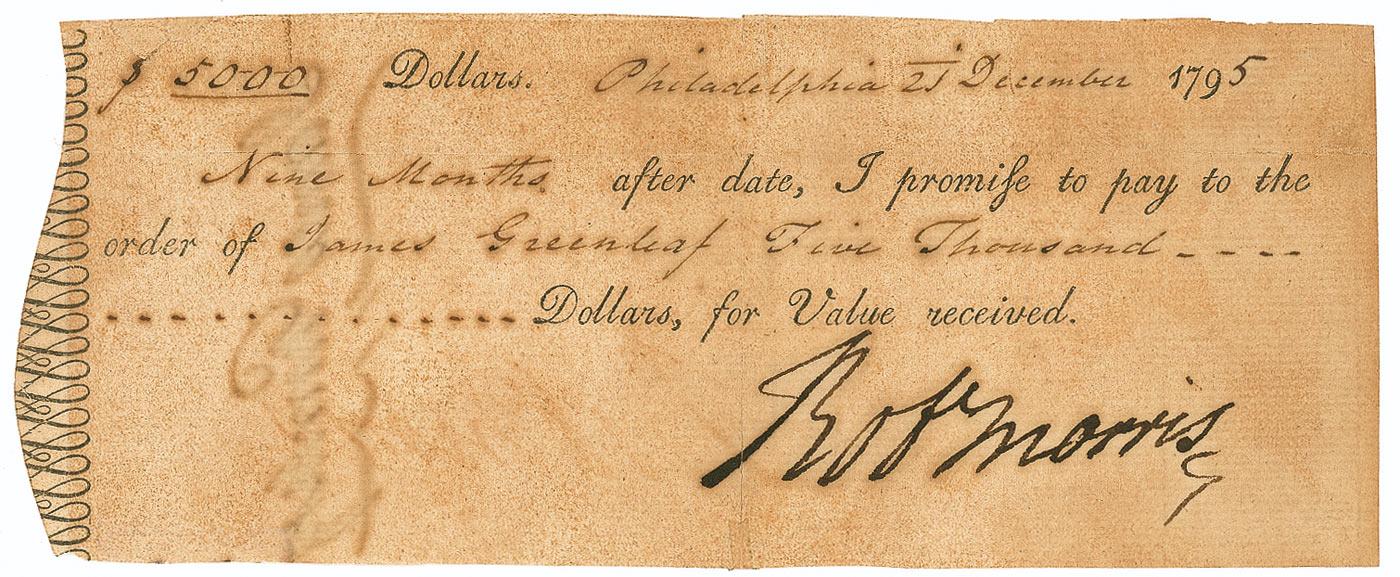 $ 5000 Dollars. Philadelphia 21st December 1795
Nine Months after date, I promiſe to pay to the
order of James Greenleaf Five Thousand ----
............... Dollars, for Value received.
Robt Morris